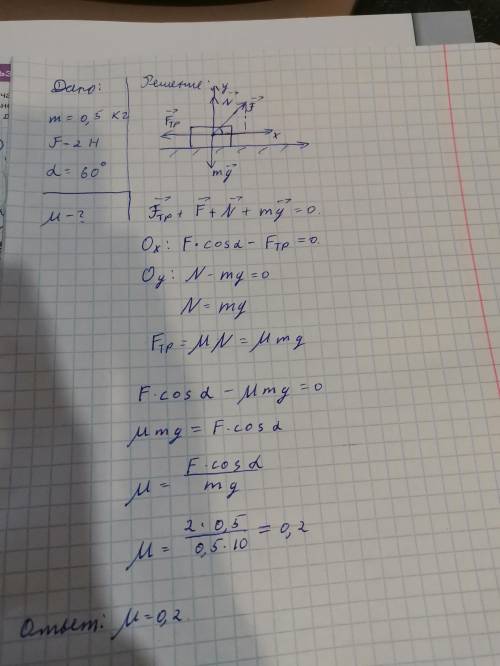 Дано:
m = 0,5 кг
F - 2 Н
α = 60°
μ - ?
Решение:
y
N
F
Fтр
x
mg
Fтр + F + N + mg = 0.
Ox: F·cosα - Fтр = 0.
Oy: N - mg = 0
N = mg
Fтр = μN = μmg
F·cosα - μmg = 0
μmg = F·cosα
μ = F·cosα / mg
μ = 2·0,5 / 0,5·10 = 0,2
Ответ: μ = 0,2